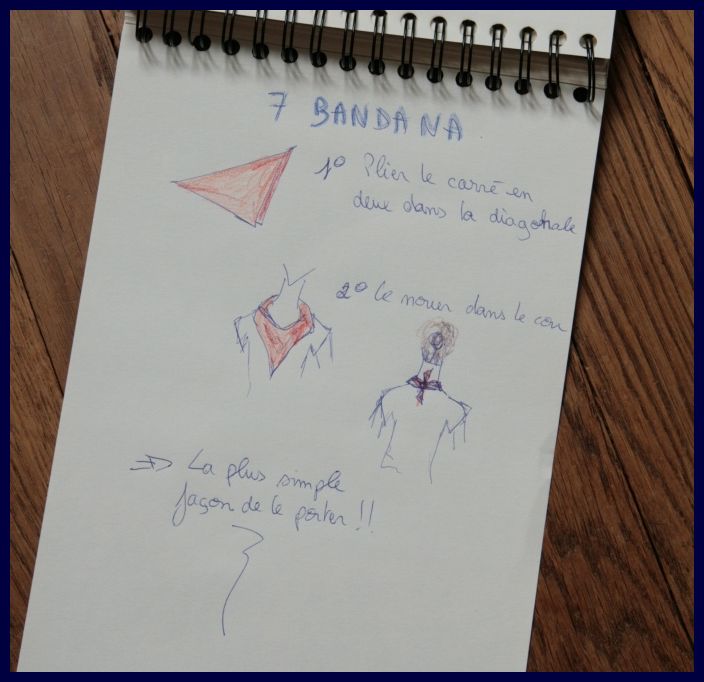 7 BANDANA
1° Plier le carré en
deux dans la diagonale
2° le nouer dans le cou
=> La plus simple
façon de le porter !!